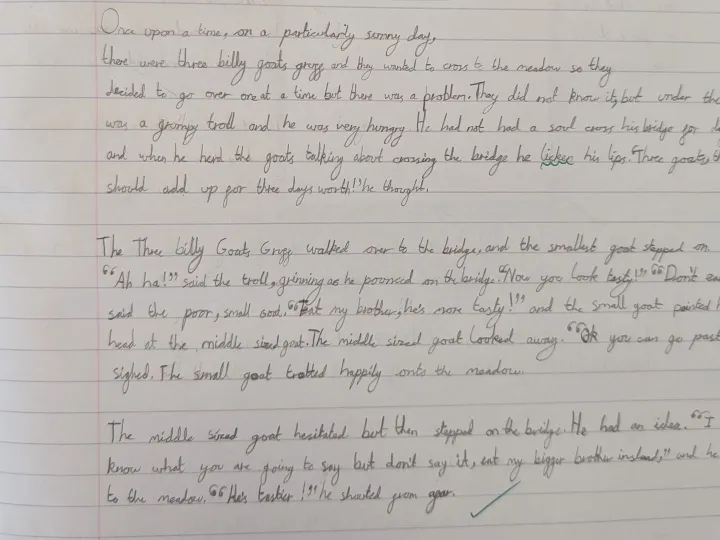 Once upon a time, on a particularly sunny day,
there were three billy goats gruff and they wanted to cross to the meadow so they
decided to go over one at a time but there was a problem. They did not know it, but under the
was a grumpy troll and he was very hungry. He had not had a soul cross his bridge for
and when he herd the goats talking about crossing the bridge he licked his lips. "Three goats,
should add up for three days worth!" he thought.
The Three billy Goats Gruff walked over to the bridge, and the smallest goat stepped on.
"Ah ha!" said the troll, grinning as he pounced on the bridge. "Now you look tasty!" "Don't
said the poor, small goat. "Eat my brother, he's more tasty!" and the small goat pointed
head at the middle sized goat. The middle sized goat looked away. "Ok you can go past
sighed. The small goat trotted happily onto the meadow.
The middle sized goat hesitated but then stepped on the bridge. He had an idea. "I
know what you are going to say but don't say it, eat my bigger brother instead," and he
to the meadow. "He's tastier!" he shouted from afar.